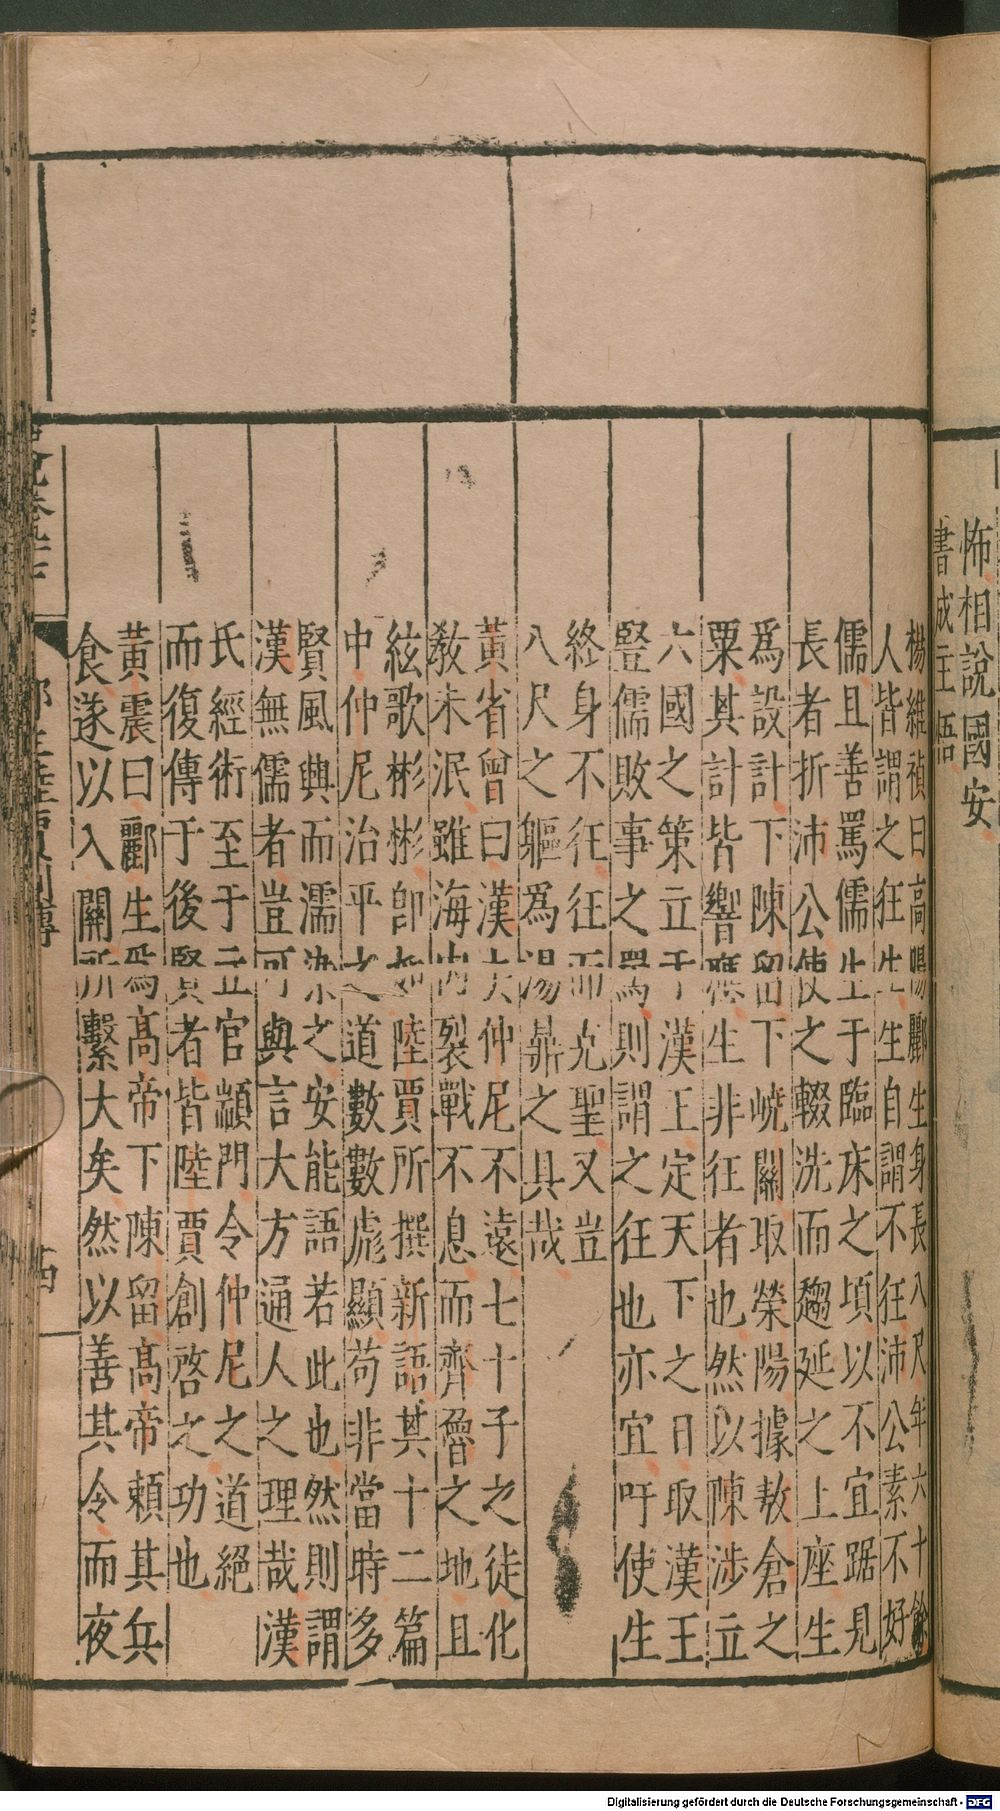 怖相說國安
書成主悟
楊維禎曰高陽酈生身長八尺年六十餘
人皆謂之狂生生自謂不狂沛公素不好
儒且善罵儒生于臨床之頃以不宜踞見
長者折沛公使之輟洗而趨延之上座生
爲設計下陳留下嶢關取滎陽據敖倉之
粟其計皆響應生非狂者也然以陳涉立
六國之策立于漢王定天下之日取漢王
豎儒敗事之罵則謂之狂也亦宜吁使生
終身不狂狂而克聖又豈
八尺之軀爲湯鼎之具哉
黃省曾曰漢去仲尼不遠七十子之徒化
敎未泯雖海内裂戰不息而齊魯之地且
絃歌彬彬卽如陸賈所撰新語其十二篇
中仲尼治平之道數數彪顯苟非當時多
賢風典而濡染之安能語若此也然則謂
漢無儒者豈可與言大方通人之理哉漢
氏經術至于立官顓門令仲尼之道絕
而復傳于後賢者皆陸賈創啓之功也
黃震曰酈生爲高帝下陳留高帝賴其兵
食遂以入關所繫大矣然以善其令而夜
史記卷九十七
酈生陸賈列傳
十四
Digitalisierung gefördert durch die Deutsche Forschungsgemeinschaft - DFG